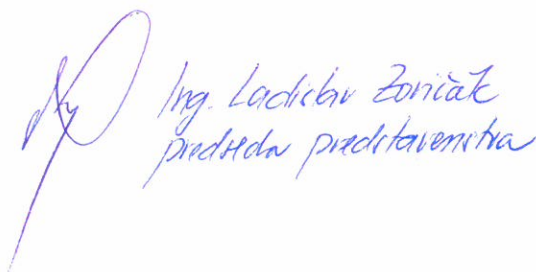 Ing. Ladislav Zoričák
predseda predstavenstva